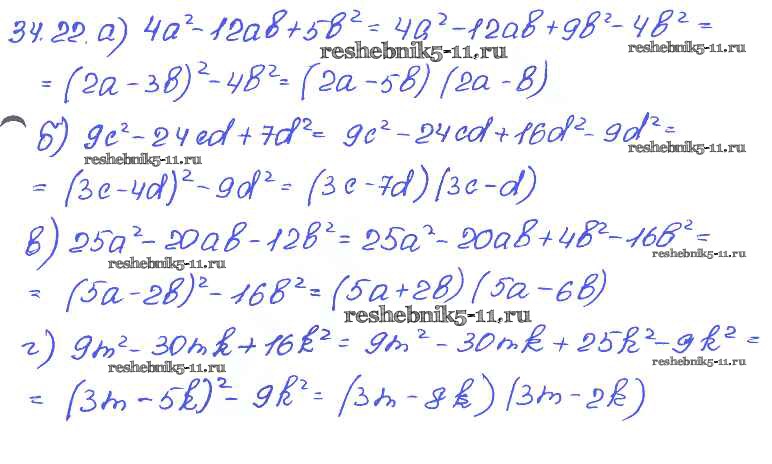 34.22. а) 4a² - 12ab + 5b² = 4a² - 12ab + 9b² - 4b² =
reshebnik5-11.ru reshebnik5-11.ru
= (2a - 3b)² - 4b² = (2a - 5b) (2a - b)
б) 9c² - 24cd + 7d² = 9c² - 24cd + 16d² - 9d² =
reshebnik5-11.ru reshebnik5-11.ru
= (3c - 4d)² - 9d² = (3c - 7d) (3c - d)
в) 25a² - 20ab - 12b² = 25a² - 20ab + 4b² - 16b² =
reshebnik5-11.ru reshebnik5-11.ru
= (5a - 2b)² - 16b² = (5a + 2b) (5a - 6b)
reshebnik5-11.ru
г) 9m² - 30mk + 16k² = 9m² - 30mk + 25k² - 9k² =
reshebnik5-11.ru reshebnik5-11.ru
= (3m - 5k)² - 9k² = (3m - 8k) (3m - 2k)